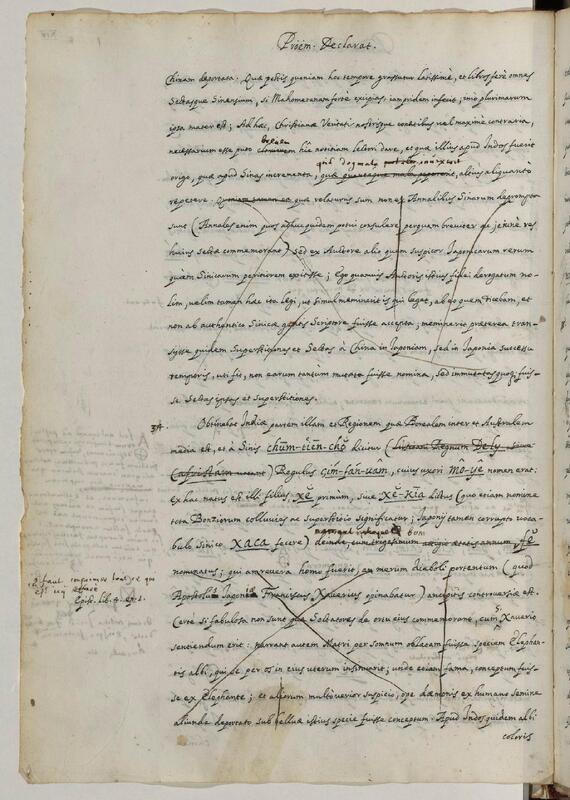 Proëm. Declarat.
Chinam deportata. Quæ pestis quoniam hoc tempore grassatur latissimè, et libros ferè omnes
Sectasque Sinensium, si Mahometanam fortè excipias, iampridem infecit; imò plurimarum
ipsa mater est; Ad hæc, Christianæ Veritati nostrisque conatibus vel maximè contraria,
necessarium esse puto hîc notitiam Lectori dare, et quæ illius apud Indos fuerit
origo, quæ apud Sinas incrementa, quæ dogmata altius aliquantò
repetere. quæ relaturus sum non ex Annalibus Sinarum deprompta
sunt (Annales enim quos adhuc quidem potui consulere perquam breviter ac jejunè res
huius sectæ commemorant) sed ex Authore alio quem suspicor Iaponicarum rerum
quàm Sinicarum peritiorem extitisse; Ego quamvis Authoris istius fidei derogatum no-
lim, velim tamen hæc ita legi, ut simul meminerit is qui leget, ab eo quem dicebam, et
non ab authentico Sinicæ gentis Scriptore fuisse accepta; meminerit præterea tran-
sisse quidem Superstitiones et Sectas à China in Iaponiam, sed in Iaponia successu
temporis, uti fit, non earum tantùm mutata fuisse nomina, sed immutatas quoque fuis-
se Sectas ipsas et Superstitiones.
Obtinebat Indiæ partem illam et Regionem quæ Borealem inter et Australem
media est, et à Sinis chūm-tiēn-chǒ dicitur
Regulus Cim-fán-uam, cuius uxori Mo-ye nomen erat:
Ex hac natus est illi filius, xě primùm, sive xě-kīa dictus (quo etiam nomine
tota Bonziorum colluvies ac superstitio significatur; Iaponij tamen corrupto voca-
bulo Sinico Xaca fecere) deinde, cum trigesimum annum, fě
nominatus; qui an revera homo fuerit, an merum diaboli portentum (quod
Apostolus Franciscus Xaverius opinabatur) ancipitis controversiæ est.
Certè si fabulosa non sunt quæ Sectatores de ortu eius commemorant, cum S. Xaverio
sentiendum erit: narrant autem Matri per somnum oblatam fuisse speciem Elephan-
tis albi, qui se per os in eius uterum insinuarit; unde etiam fama, conceptum fuis-
se ex Elephante; et aliorum multò verior suspicio, ope dæmonis ex humano semine
aliunde deportato sub belluæ istius specie fuisse conceptum. Apud Indos quidem albi
coloris